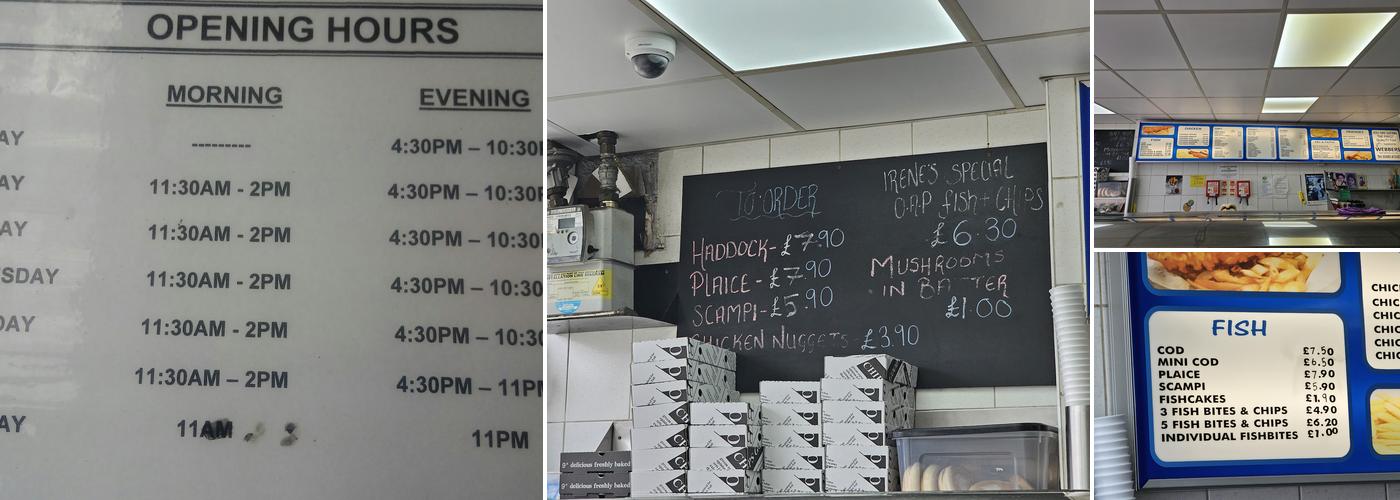 OPENING HOURS
MORNING
EVENING
AY
---------
4:30PM – 10:30
AY
11:30AM - 2PM
4:30PM – 10:30
AY
11:30AM - 2PM
4:30PM – 10:30
SDAY
11:30AM - 2PM
4:30PM – 10:30
DAY
11:30AM - 2PM
4:30PM – 10:30
11:30AM – 2PM
4:30PM – 11PM
AY
11AM
11PM
TO ORDER
HADDOCK-£7.90
PLAICE-£7.90
SCAMPI-£5.90
CHICKEN NUGGETS £3.90
IRENE'S SPECIAL
O.A.P FISH+CHIPS
£6.30
MUSHROOMS
IN BATTER
£1.00
9" delicious freshly baked
9" delicious freshly baked
CHICKEN
WEBBER
FISH
COD £7.50
MINI COD £6.50
PLAICE £7.90
SCAMPI £5.90
FISHCAKES £1.90
3 FISH BITES & CHIPS £4.90
5 FISH BITES & CHIPS £6.20
INDIVIDUAL FISHBITES £1.00
CHIC
CHIC
CHIC
CHIC
CHIC
CHIC